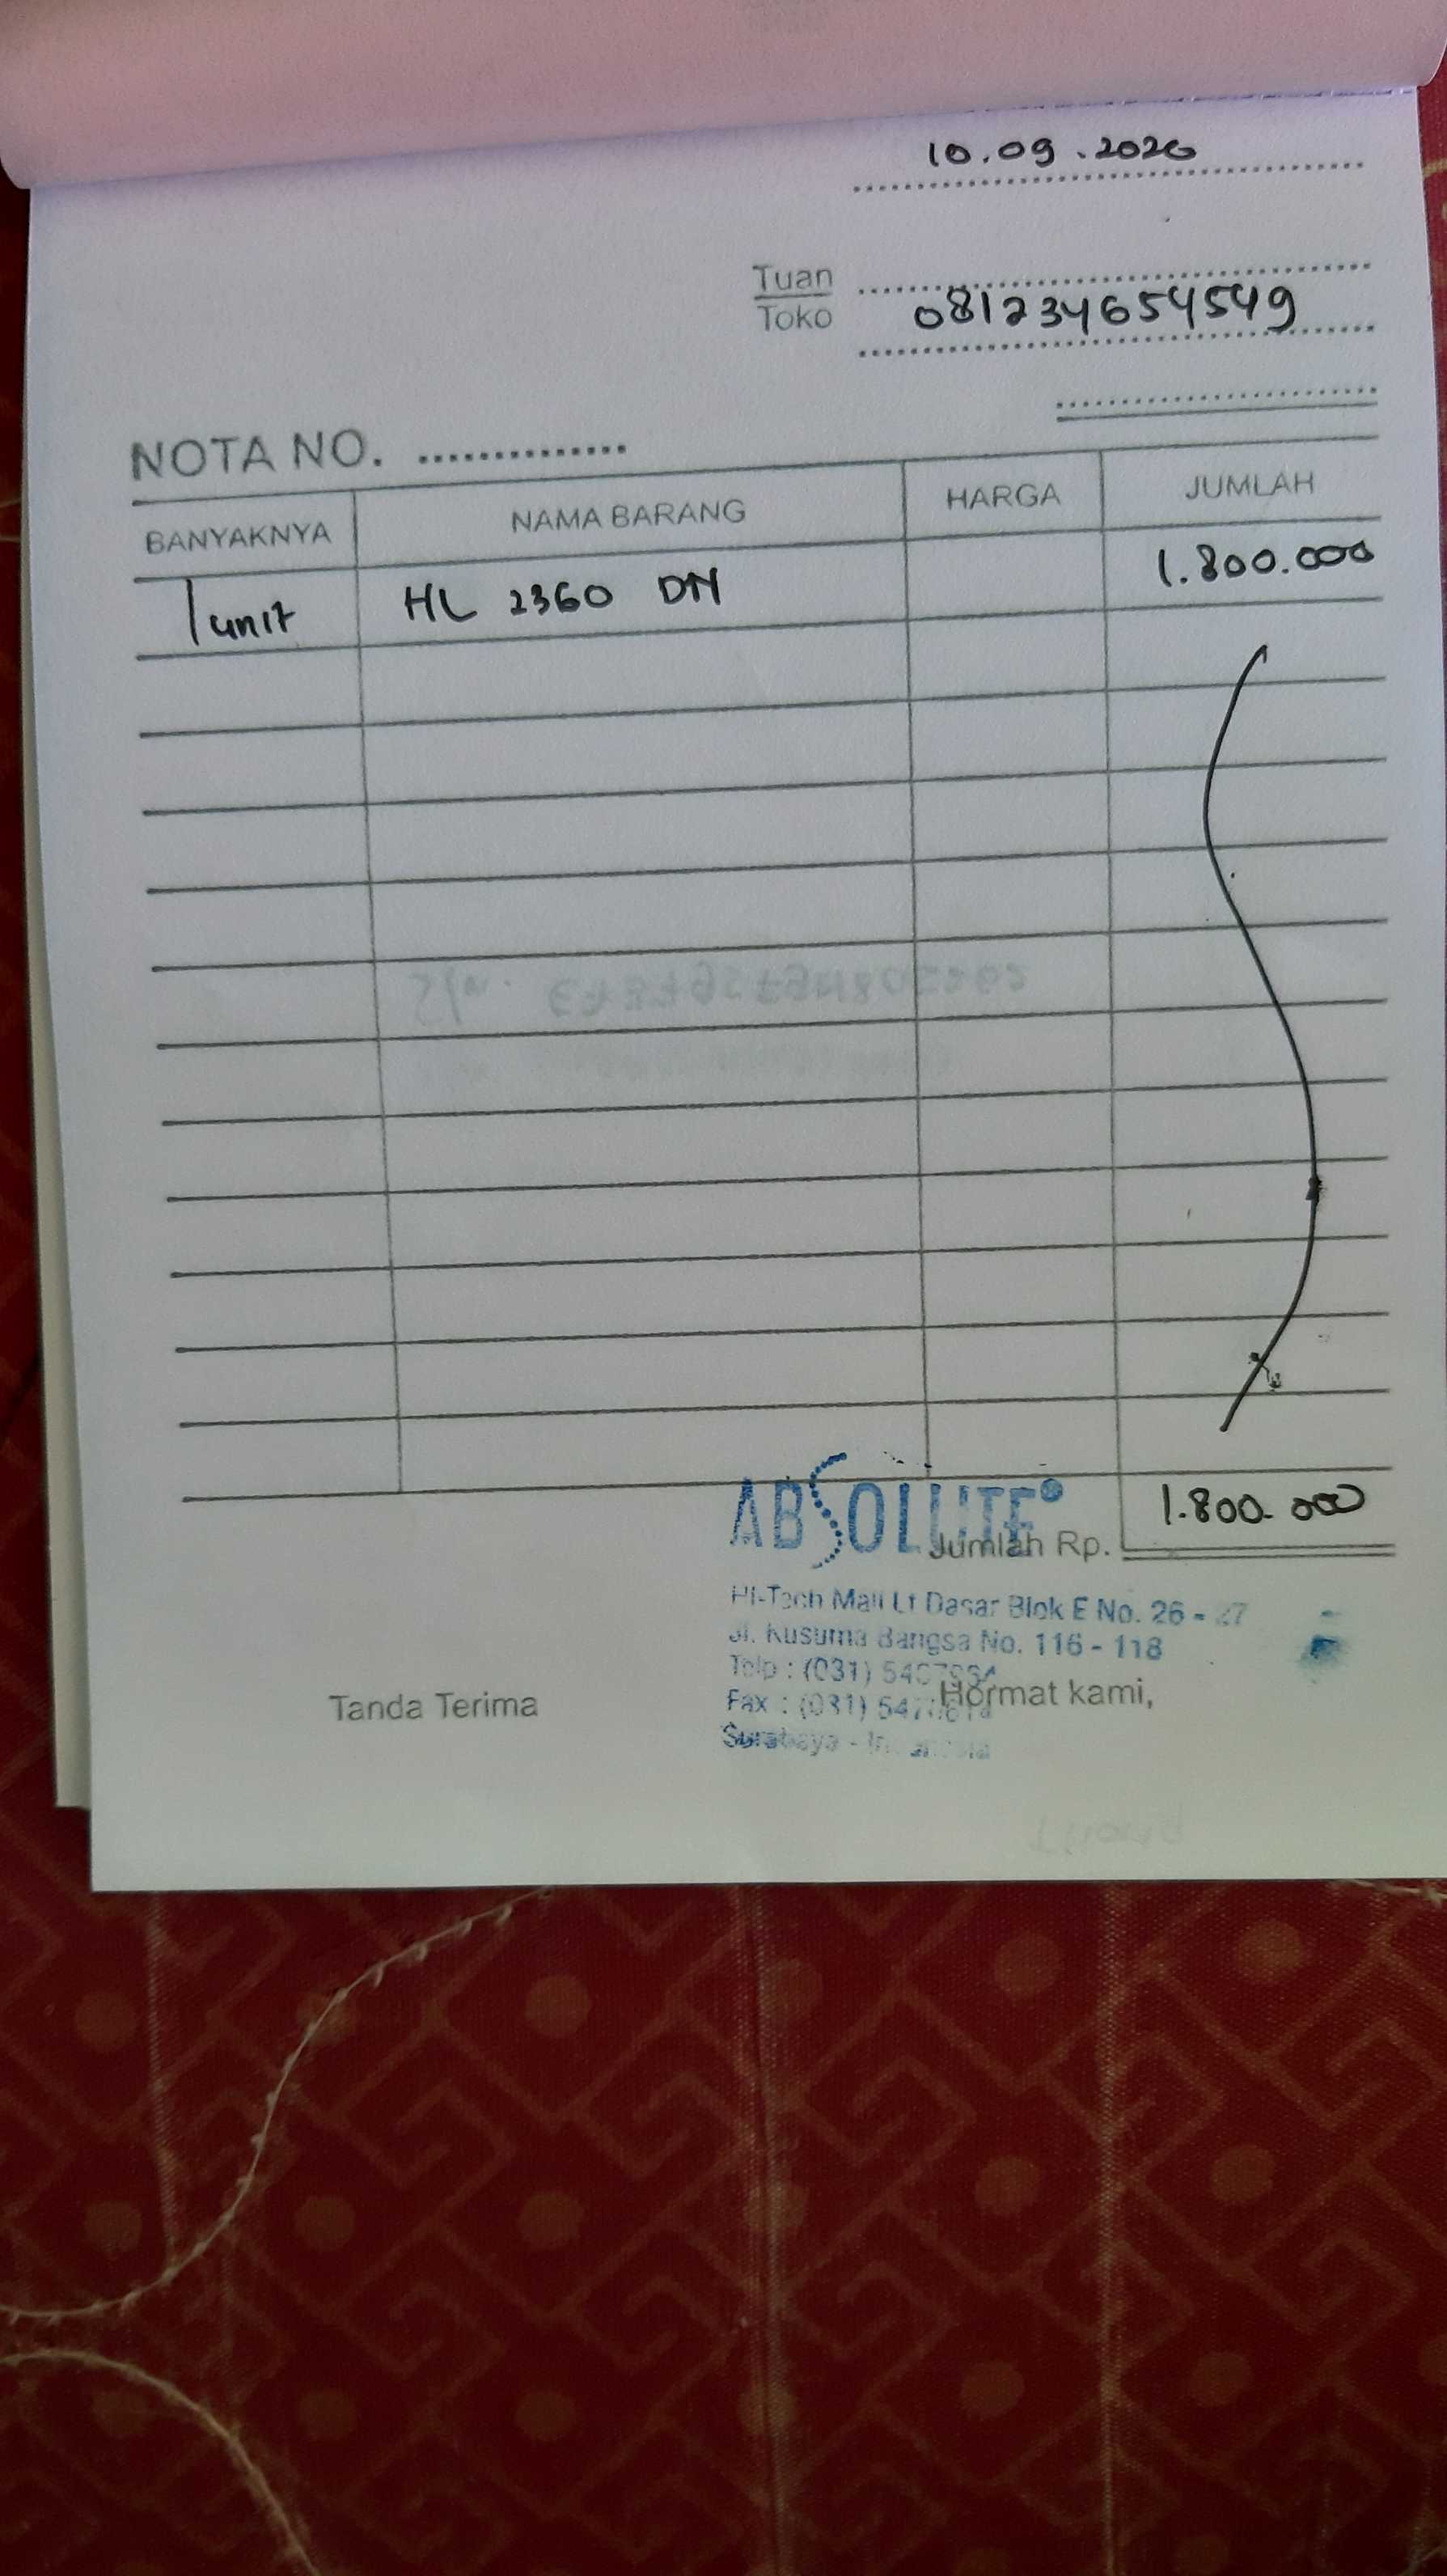 10.09.2020
Tuan
Toko
081234654549
NOTA NO. ..............
BANYAKNYA NAMA BARANG HARGA JUMLAH
1 unit HL 2360 DN 1.800.000
ABSOLUTE
Jumlah Rp. 1.800.000
Hi-Tech Mall Lt Dasar Blok E No. 26 - 27
Jl. Kusuma Bangsa No. 116 - 118
Telp : (031)
Tanda Terima
Hormat kami,
Fax : (031)
Surabaya - Indonesia